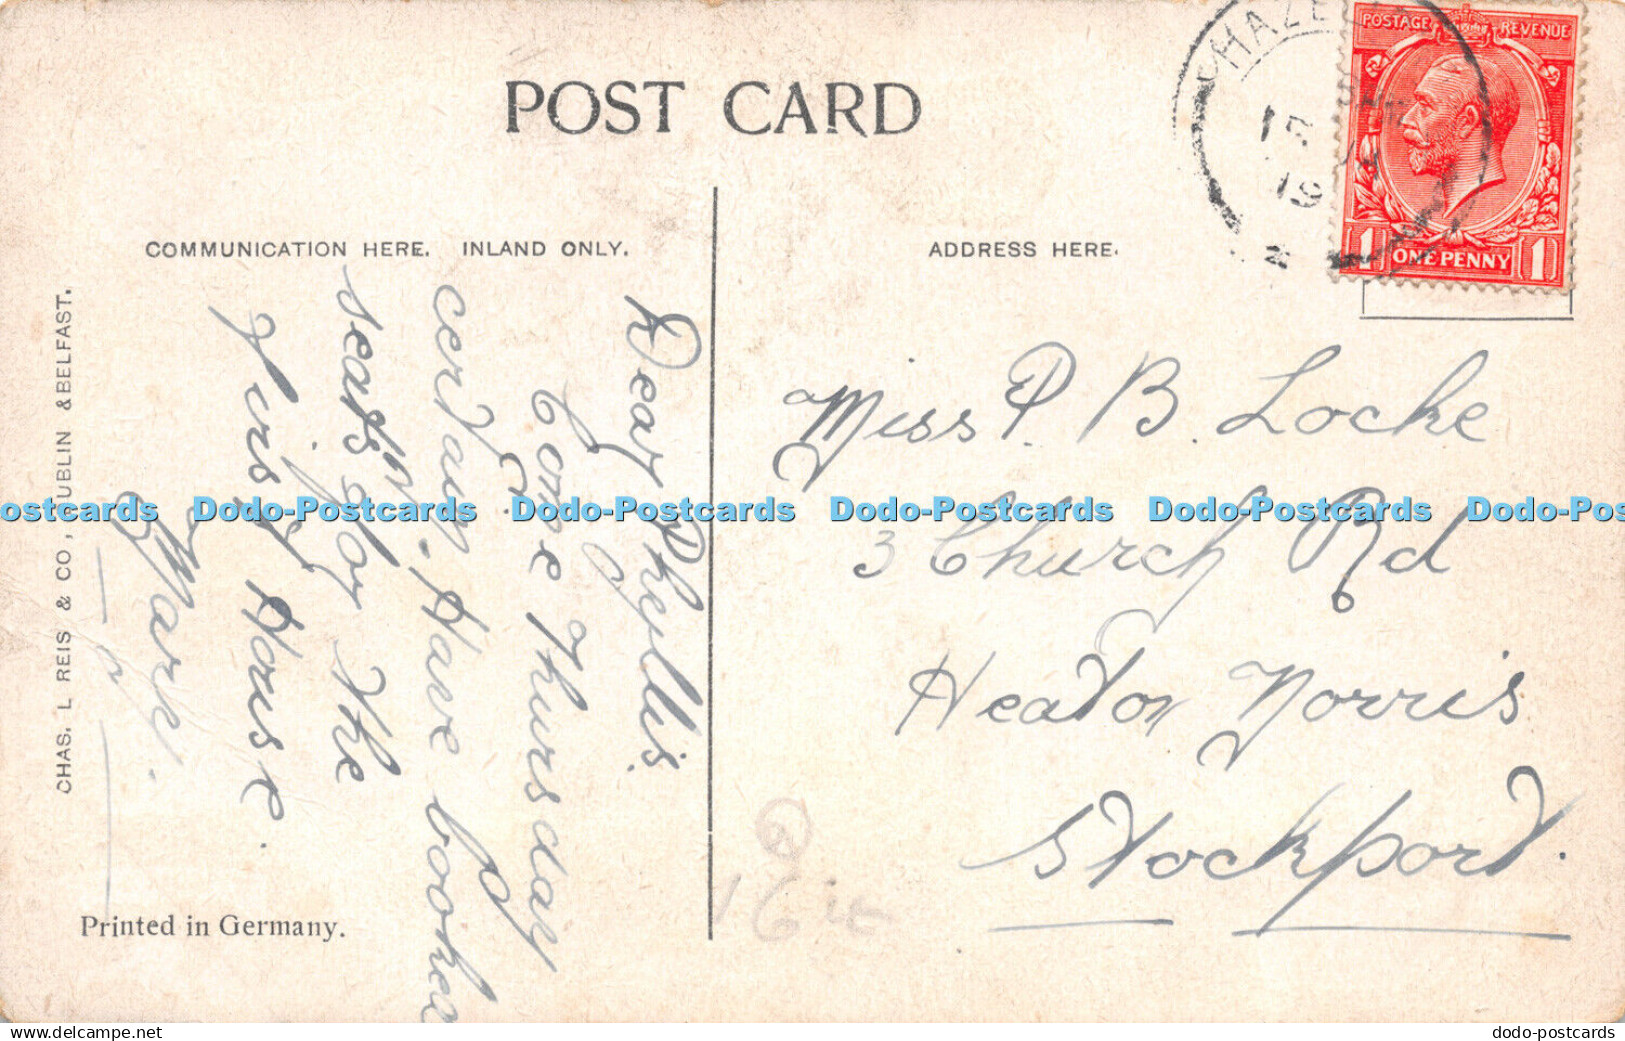 POST CARD
HAZE
19
POSTAGE REVENUE
1 ONE PENNY 1
COMMUNICATION HERE. INLAND ONLY.
ADDRESS HERE.
Dear Phyllis.
Come Thursday
certain. Have booked
seats for the
first House.
Mark.
Miss P. B. Locke
3 Church Rd
Heaton Norris
Stockport.
16
CHAS. L REIS & CO, DUBLIN & BELFAST.
Printed in Germany.
ostcards Dodo-Postcards Dodo-Postcards Dodo-Postcards Dodo-Postcards Dodo-Pos
dodo-postcards.com
dodo-postcards